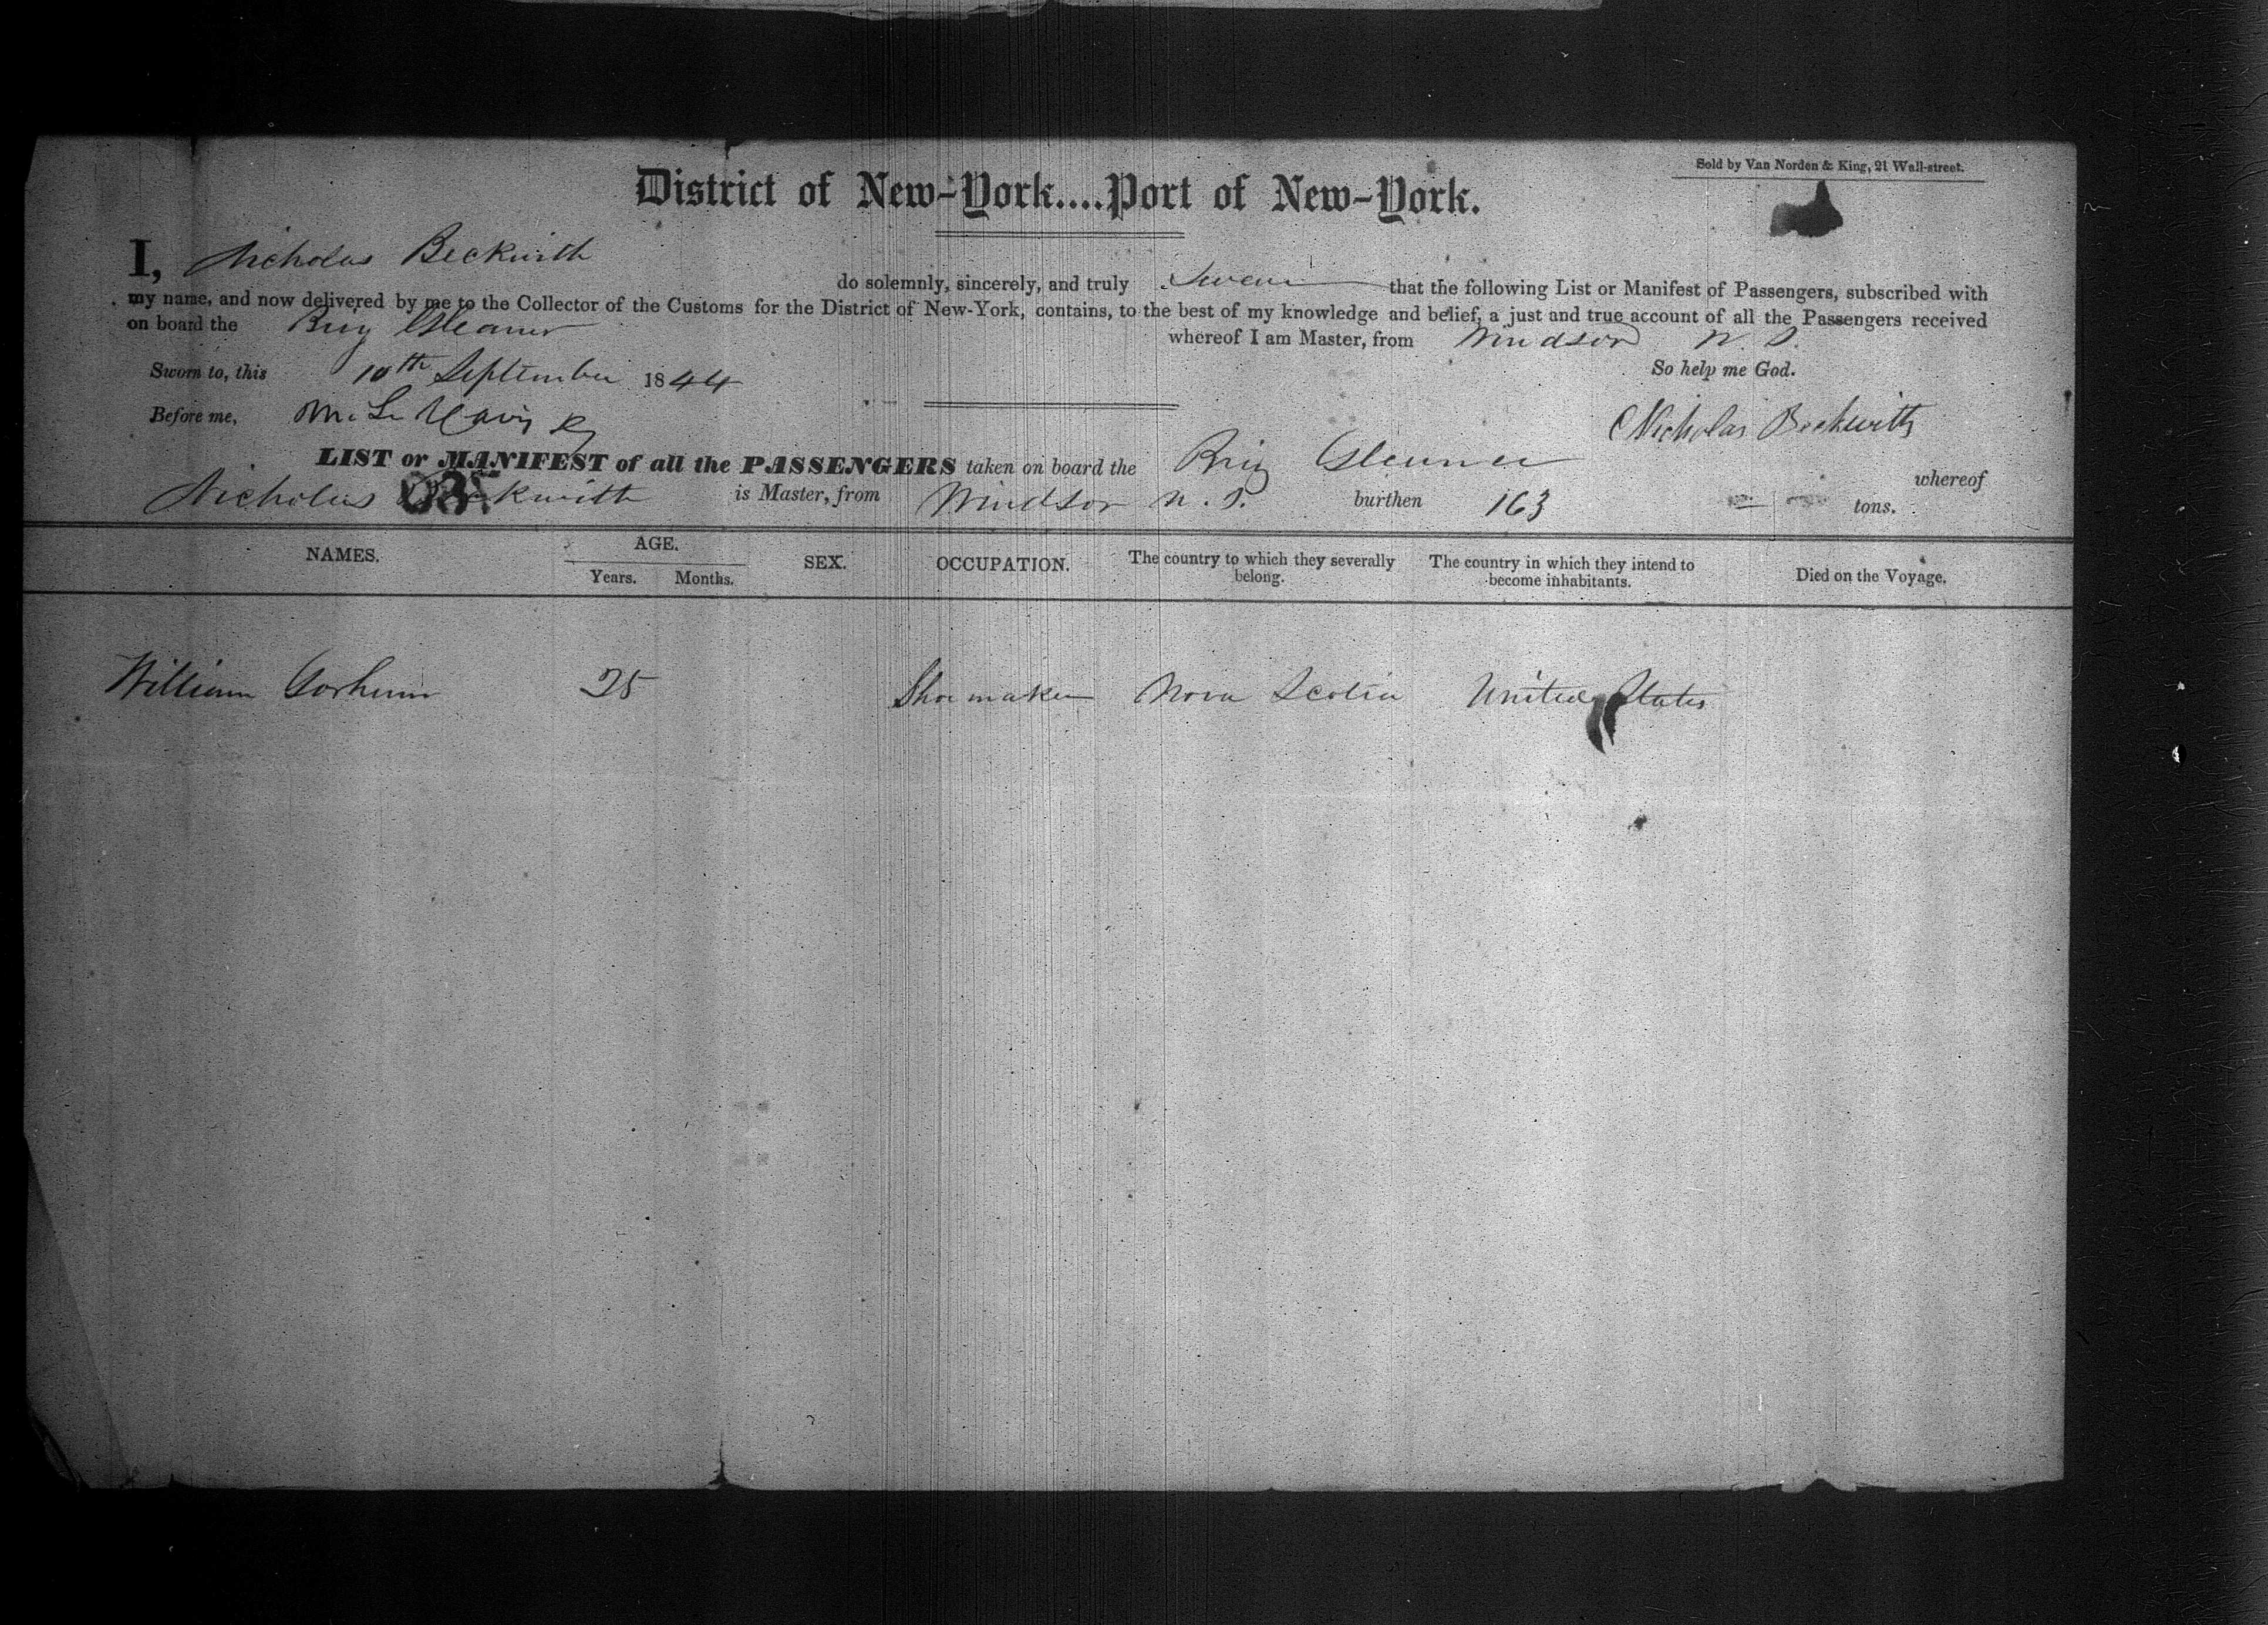 Sold by Van Norden & King, 21 Wall-street.
District of New-York....Port of New-York.
I, Nicholas Beckwith do solemnly, sincerely, and truly Swear that the following List or Manifest of Passengers, subscribed with
my name, and now delivered by me to the Collector of the Customs for the District of New-York, contains, to the best of my knowledge and belief, a just and true account of all the Passengers received
on board the Brig Gleaner whereof I am Master, from Windsor N. S.
Sworn to, this 10th September 1844 So help me God.
Before me,
Nicholas Beckwith
LIST or MANIFEST of all the PASSENGERS taken on board the Brig Gleaner whereof
Nicholas Beckwith is Master, from Windsor N. S. burthen 163 tons.
NAMES. AGE. SEX. OCCUPATION. The country to which they severally belong. The country in which they intend to become inhabitants. Died on the Voyage.
Years. Months.
William Gorham 25 Shoemaker Nova Scotia United States